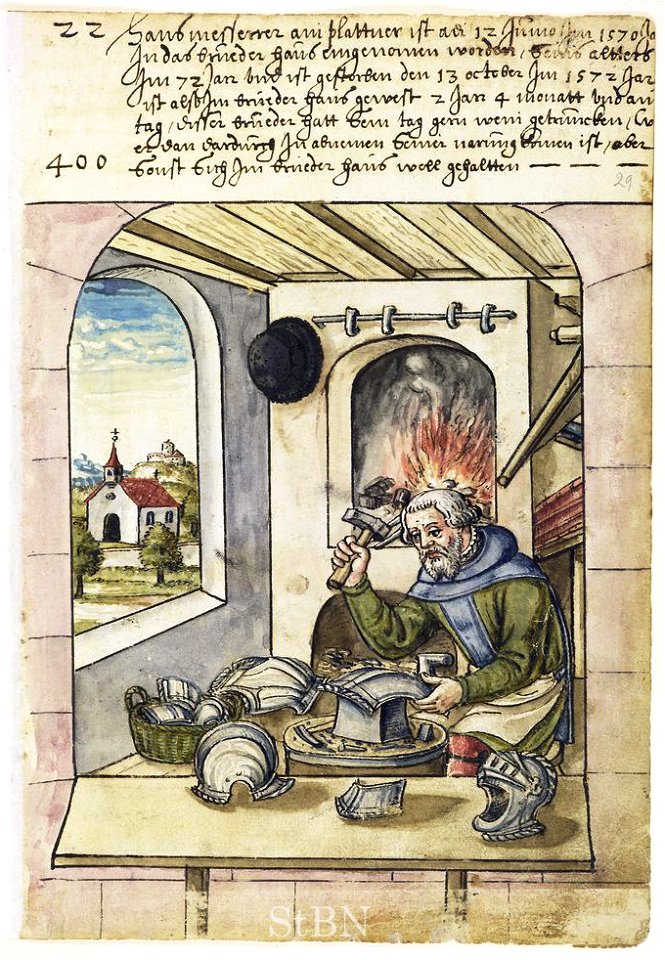 22 Hanns messerer ain plattner ist adi 12 Junno Im 1570 Ja
In das brueder haus eingenomen worden, Seins alters
Im 72 Jar vnd ist gestorben den 13 october Im 1572 Jar
ist also Im brueder haus gewest 2 Jar 4 monatt vnd ain
tag, disser brueder hatt Sein tag gern wein getruncken,
er dan dardurch In abnemen Seiner narung komen ist, aber
400 Sonst Sich Im brueder haus woll gehaltten
29
StBN